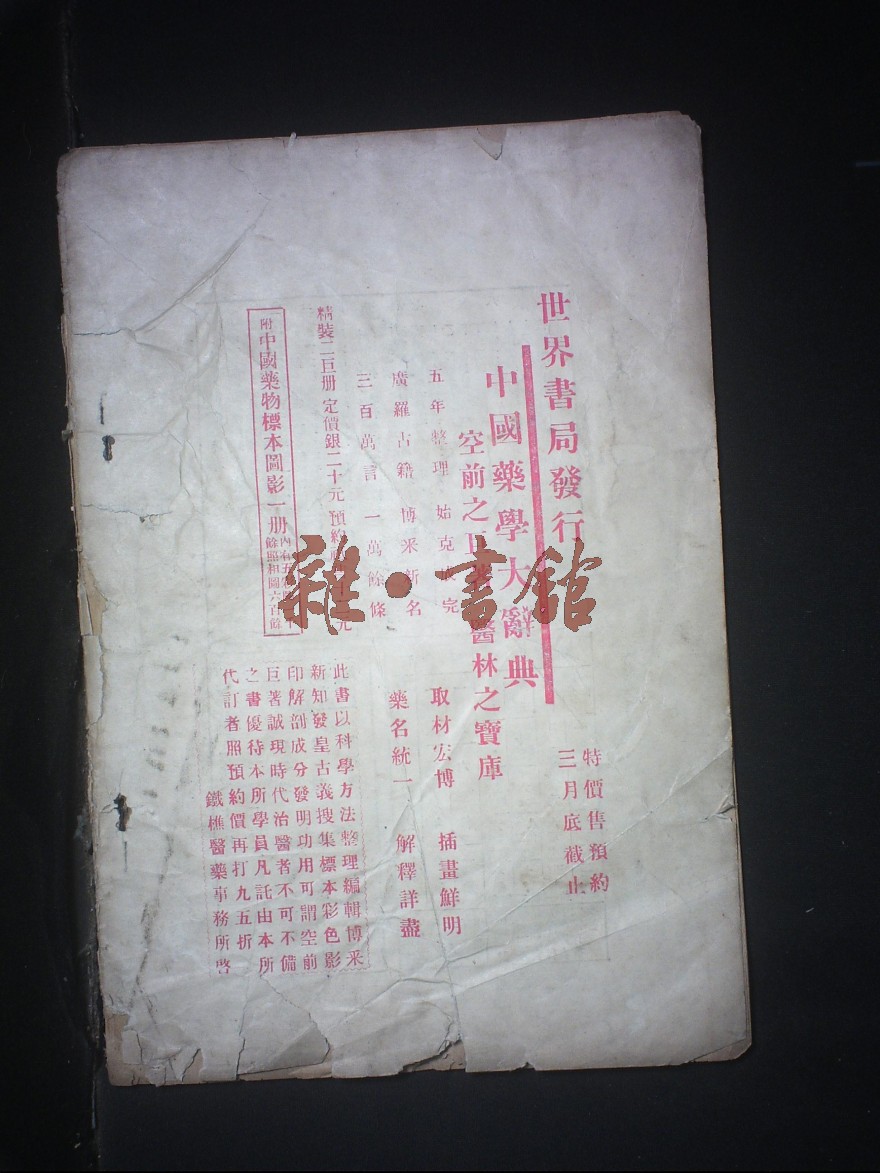 世界書局發行
特價售預約
三月底截止
中國藥學大辭典
空前之巨著 醫林之寶庫
五年整理 始克 完
取材宏博 插畫鮮明
廣羅古籍 博采新名
藥名統一 解釋詳盡
三百萬言 一萬餘條
精裝二巨册 定價銀二十元 預約 元
附中國藥物標本圖影一册
內有五
餘照相圖六百餘
此書以科學方法整理編輯博采
新知發皇古義搜集標本彩色影
印解剖成分發明功用可謂空前
巨著誠現時代治醫者不可不備
之書優待本所學員凡託由本所
代訂者照預約價再打九五折
鐵樵醫藥事務所啓
雜·書館